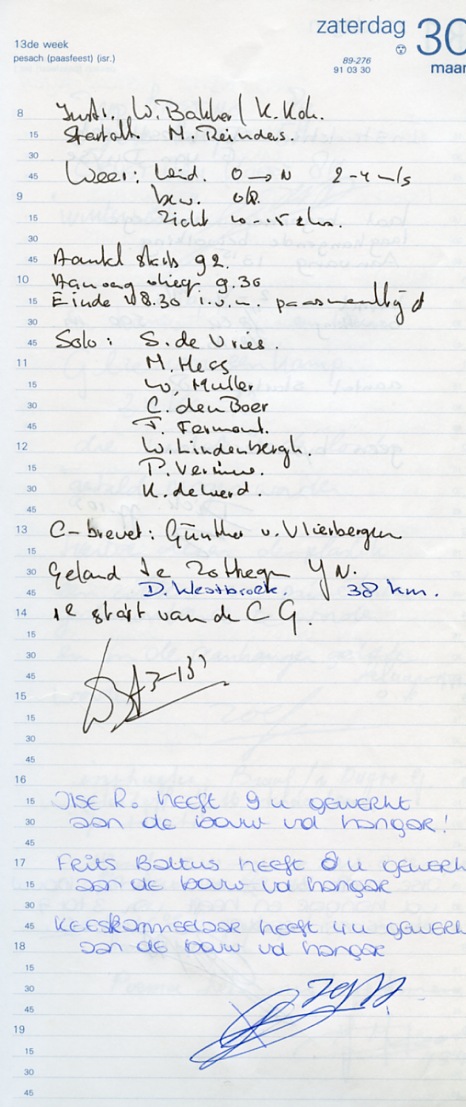 zaterdag 30
13de week
pesach (paasfeest) (isr.)
89-276
91 03 30
maar
8 Instr. W. Bakker / K. Kok.
15 Startoff. M. Reinders.
30
45 Weer: wind. O → N 2-4 m/s
9 bew.
15 Zicht
30
45 Aantal starts 92.
10 Aanvang vlieg. 9.30
15 Einde 18.30 i.v.m. paasmaaltijd
30
45 Solo: S. de Vries.
11 M. Hess
15 W. Muller
30 C. den Boer
45 F. Fermont.
12 W. Lindenbergh.
15 P.
30 K. de Werd.
45
13 C-brevet: Günther v. Vlierbergen
15
30 Geland te Zothegem YN.
45 D. Westbroek. 38 km.
14 1e start van de CG.
15
30
45
15
15
30
45
16
15 Ilse R. heeft 9 u gewerkt
30 aan de bouw vd hangar!
45
17 Frits Baltus heeft 8 u gewerk
15 aan de bouw vd hangar
30
45 Kees Kammelaar heeft 4 u gewerk
18 aan de bouw vd hangar
15
30
45
19
15
30
45